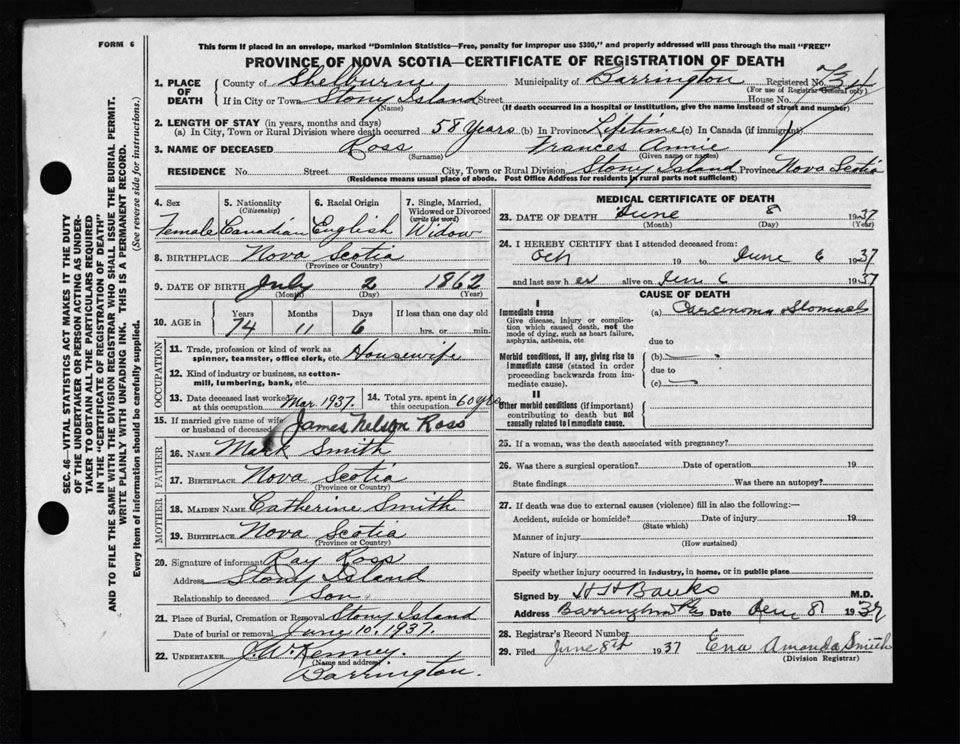 FORM 6
This form if placed in an envelope, marked "Dominion Statistics—Free, penalty for improper use $300," and properly addressed will pass through the mail "FREE"
PROVINCE OF NOVA SCOTIA—CERTIFICATE OF REGISTRATION OF DEATH
1. PLACE OF DEATH County of Shelburne Municipality of Barrington Registered No.
(For use of Registrar General only)
If in City or Town Stony Island Street House No.
(Name) (If death occurred in a hospital or institution, give the name instead of street and number)
2. LENGTH OF STAY (in years, months and days)
(a) In City, Town or Rural Division where death occurred 58 Years (b) In Province Lifetime (c) In Canada (if immigrant)
3. NAME OF DECEASED Ross Frances Annie
(Surname) (Given name or names)
RESIDENCE No. Street City, Town or Rural Division Stony Island Province Nova Scotia
(Residence means usual place of abode. Post Office Address for residents in rural parts not sufficient)
4. Sex 5. Nationality 6. Racial Origin 7. Single, Married, Widowed or Divorced
(Citizenship) (write the word)
Female Canadian English Widow
8. BIRTHPLACE Nova Scotia
(Province or Country)
9. DATE OF BIRTH July 2 1862
(Month) (Day) (Year)
10. AGE in Years Months Days If less than one day old
74 11 6 hrs. or min.
OCCUPATION
11. Trade, profession or kind of work as spinner, teamster, office clerk, etc. Housewife
12. Kind of industry or business, as cotton-mill, lumbering, bank, etc.
13. Date deceased last worked at this occupation Mar. 1937. 14. Total yrs. spent in this occupation 60 yrs
15. If married give name of wife or husband of deceased James Nelson Ross
FATHER
16. NAME Mark Smith
17. BIRTHPLACE Nova Scotia
(Province or Country)
MOTHER
18. MAIDEN NAME Catherine Smith
19. BIRTHPLACE Nova Scotia
(Province or Country)
20. Signature of informant Ray Ross
Address Stony Island
Relationship to deceased Son
21. Place of Burial, Cremation or Removal Stony Island
Date of burial or removal June 10, 1937.
22. UNDERTAKER J. W. Kenney.
(Name and address)
Barrington.
MEDICAL CERTIFICATE OF DEATH
23. DATE OF DEATH June 8 1937
(Month) (Day) (Year)
24. I HEREBY CERTIFY that I attended deceased from:
Oct 19 to June 6 1937
and last saw her alive on June 6 1937
CAUSE OF DEATH
I
Immediate cause (a) Carcinoma Stomach
Give disease, injury or complication which caused death, not the mode of dying, such as heart failure, asphyxia, asthenia, etc.
due to
Morbid conditions, if any, giving rise to immediate cause (stated in order proceeding backwards from immediate cause).
(b)
due to
(c)
II
Other morbid conditions (if important) contributing to death but not causally related to immediate cause.
25. If a woman, was the death associated with pregnancy?
26. Was there a surgical operation? Date of operation 19
State findings Was there an autopsy?
27. If death was due to external causes (violence) fill in also the following:—
Accident, suicide or homicide? Date of injury 19
(State which)
Manner of injury
(How sustained)
Nature of injury
Specify whether injury occurred in industry, in home, or in public place
Signed by H H Banks M.D.
Address Barrington Date 8 1937
28. Registrar's Record Number
29. Filed June 8th 1937 Ena Amanda Smith
(Division Registrar)
SEC. 46—VITAL STATISTICS ACT MAKES IT THE DUTY
OF THE UNDERTAKER OR PERSON ACTING AS UNDERTAKER
TO OBTAIN ALL THE PARTICULARS REQUIRED
IN THE "CERTIFICATE OF REGISTRATION OF DEATH"
AND TO FILE THE SAME WITH THE DIVISION REGISTRAR WHO SHALL ISSUE THE BURIAL PERMIT.
WRITE PLAINLY WITH UNFADING INK. THIS IS A PERMANENT RECORD.
Every item of information should be carefully supplied. (See reverse side for instructions.)